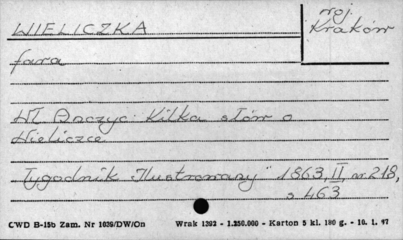 WIELICZKA
woj.
Kraków
fara
Wł. Anczyc: Kilka słów o
Wieliczce.
"Tygodnik Ilustrowany" 1863, II, nr 218,
s. 463
CWD B-15b Zam. Nr 1639/DW/On Wrak 1392 - 1.250.000 - Karton 5 kl. 180 g. - 10. 1. 47